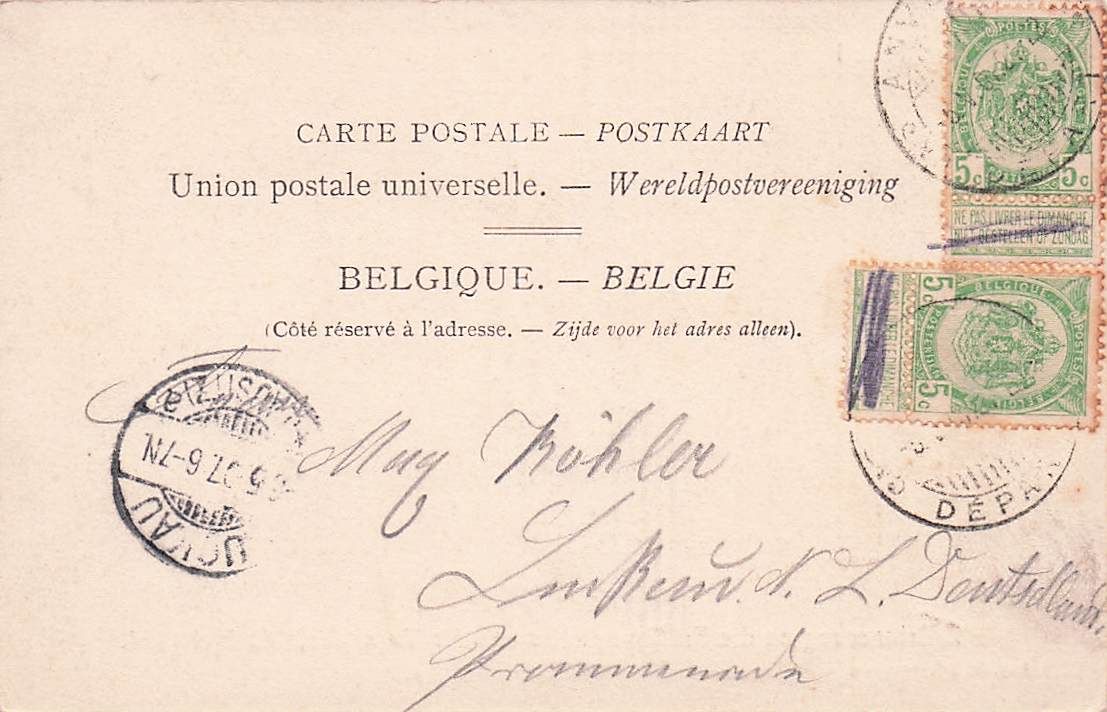 CARTE POSTALE — POSTKAART
Union postale universelle. — Wereldpostvereeniging
BELGIQUE. — BELGIE
(Côté réservé à l'adresse. — Zijde voor het adres alleen).
POSTES
BELGIQUE
5c 5c
NE PAS LIVRER LE DIMANCHE
NIET BESTELLEN OP ZONDAG
BELGIQUE
POSTES
5c 5c
DÉPART
6-7N
Köhler
Luckau N. L. Deutschland
Promenade